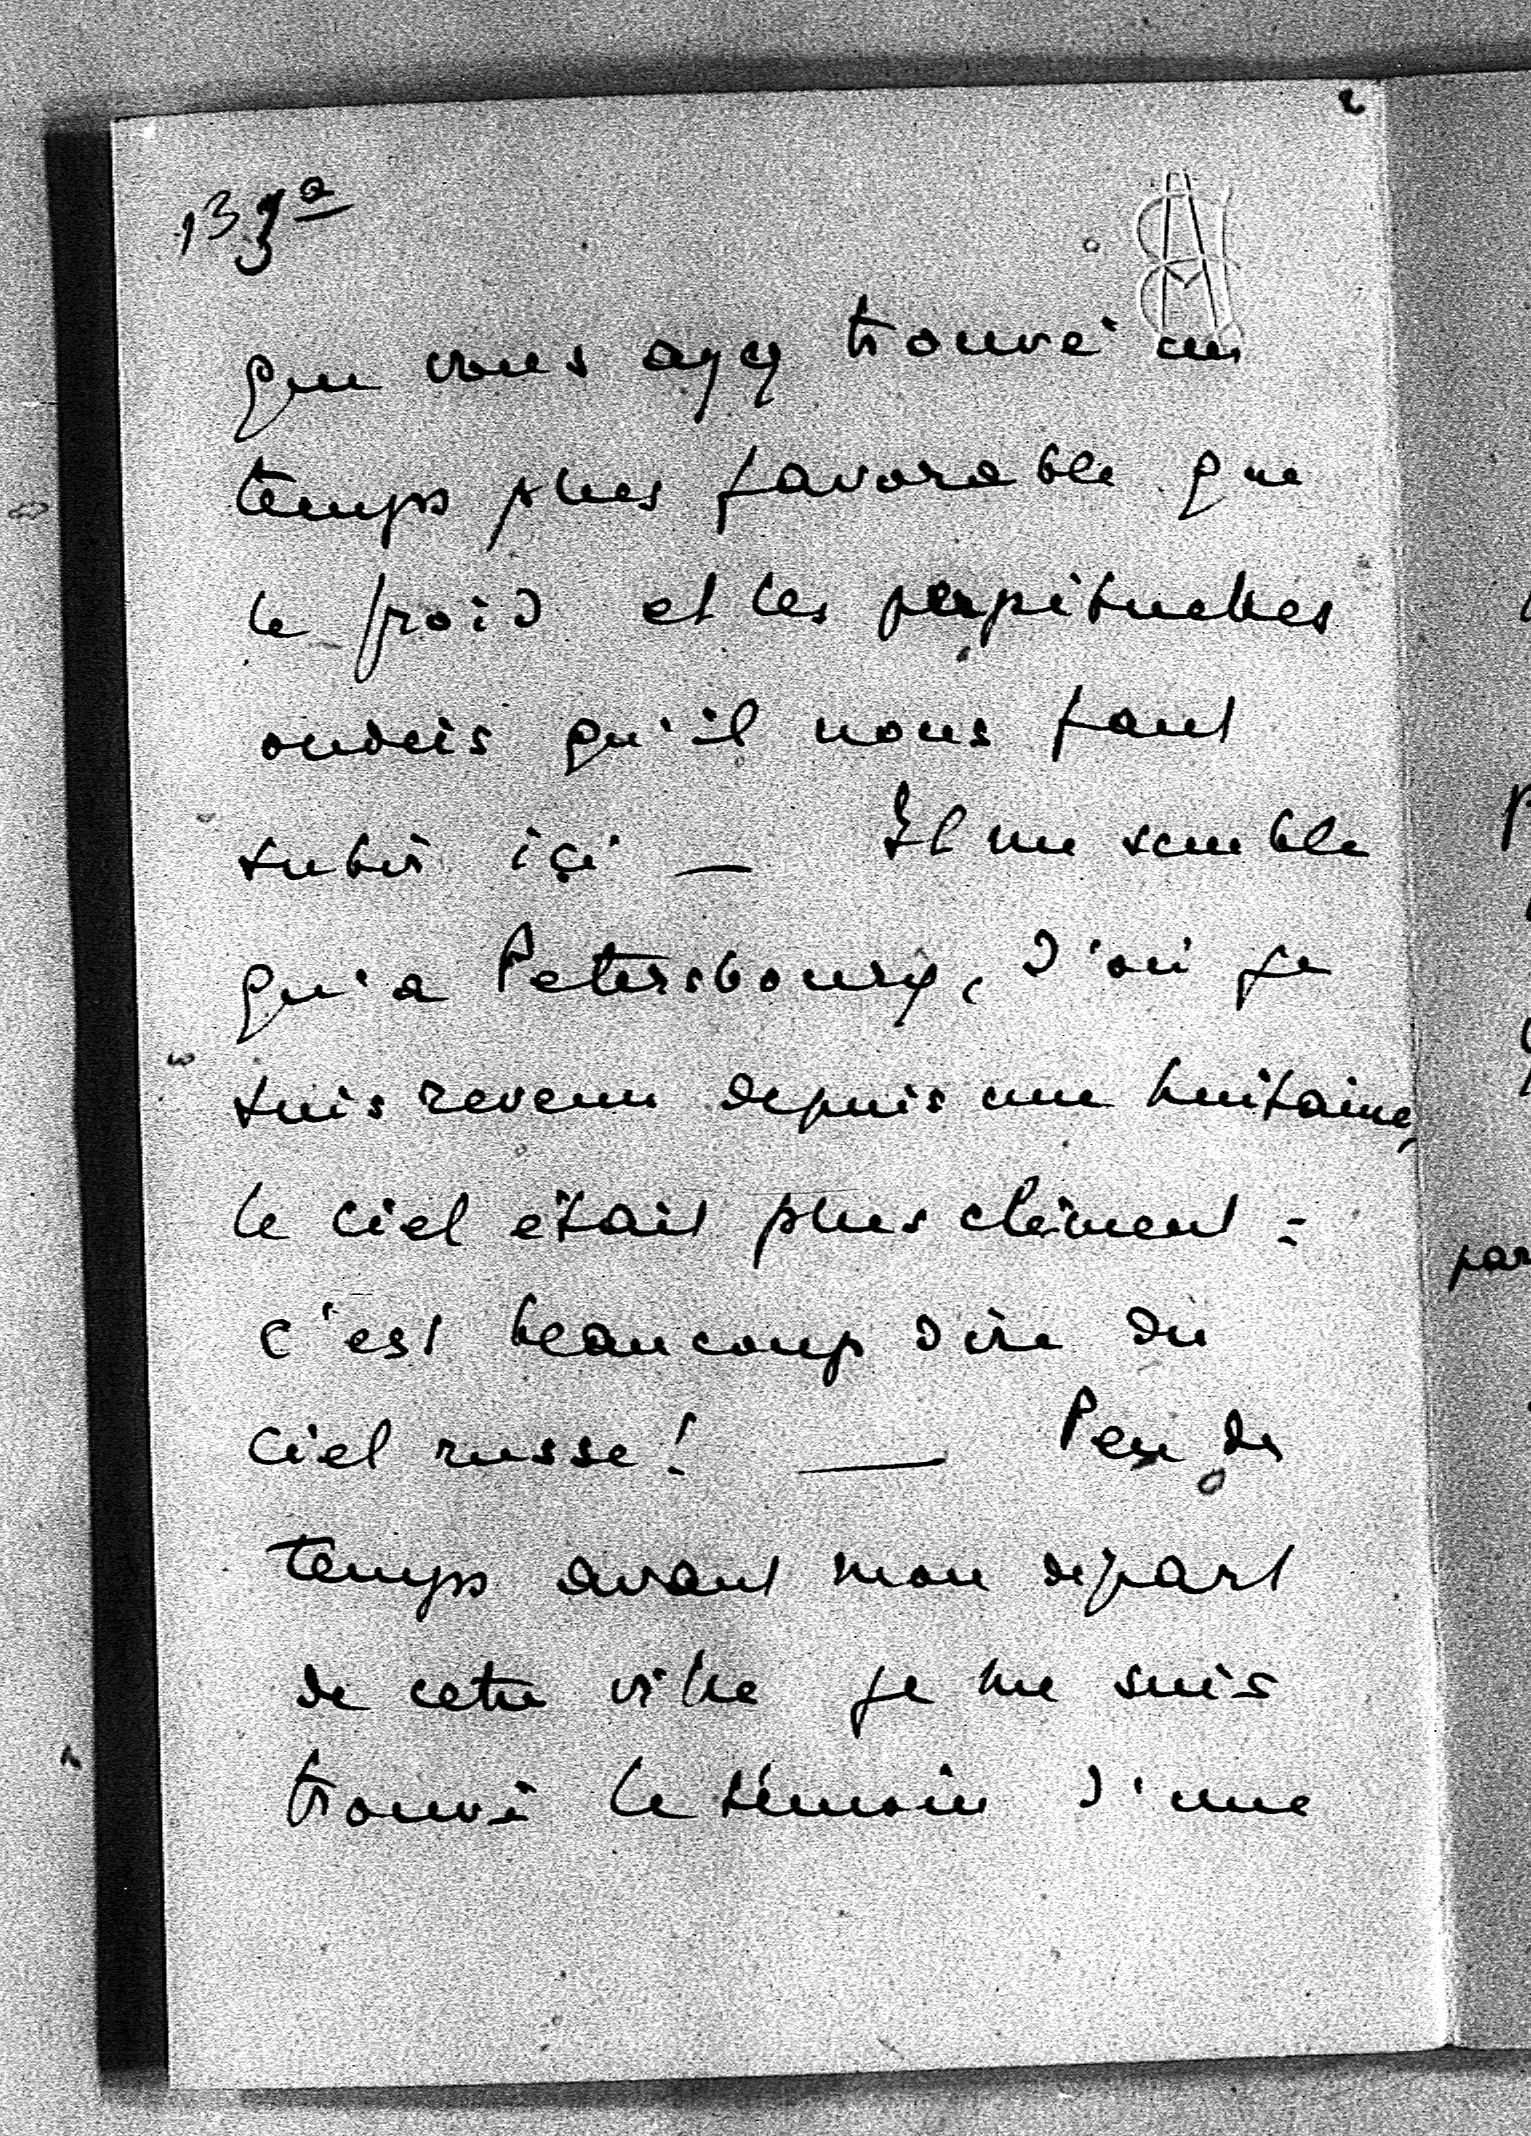 que vous ayez trouvé un
temps plus favorable que
le froid et les perpétuelles
ondées qu'il nous faut
subir içi — Il me semble
qu'a Petersbourg, d'où je
suis revenu depuis une huitaine,
le ciel était plus clément :
c'est beaucoup dire du
ciel russe ! — Peu de
temps avant mon départ
de cette ville je me suis
trouvé le témoin d'une
par